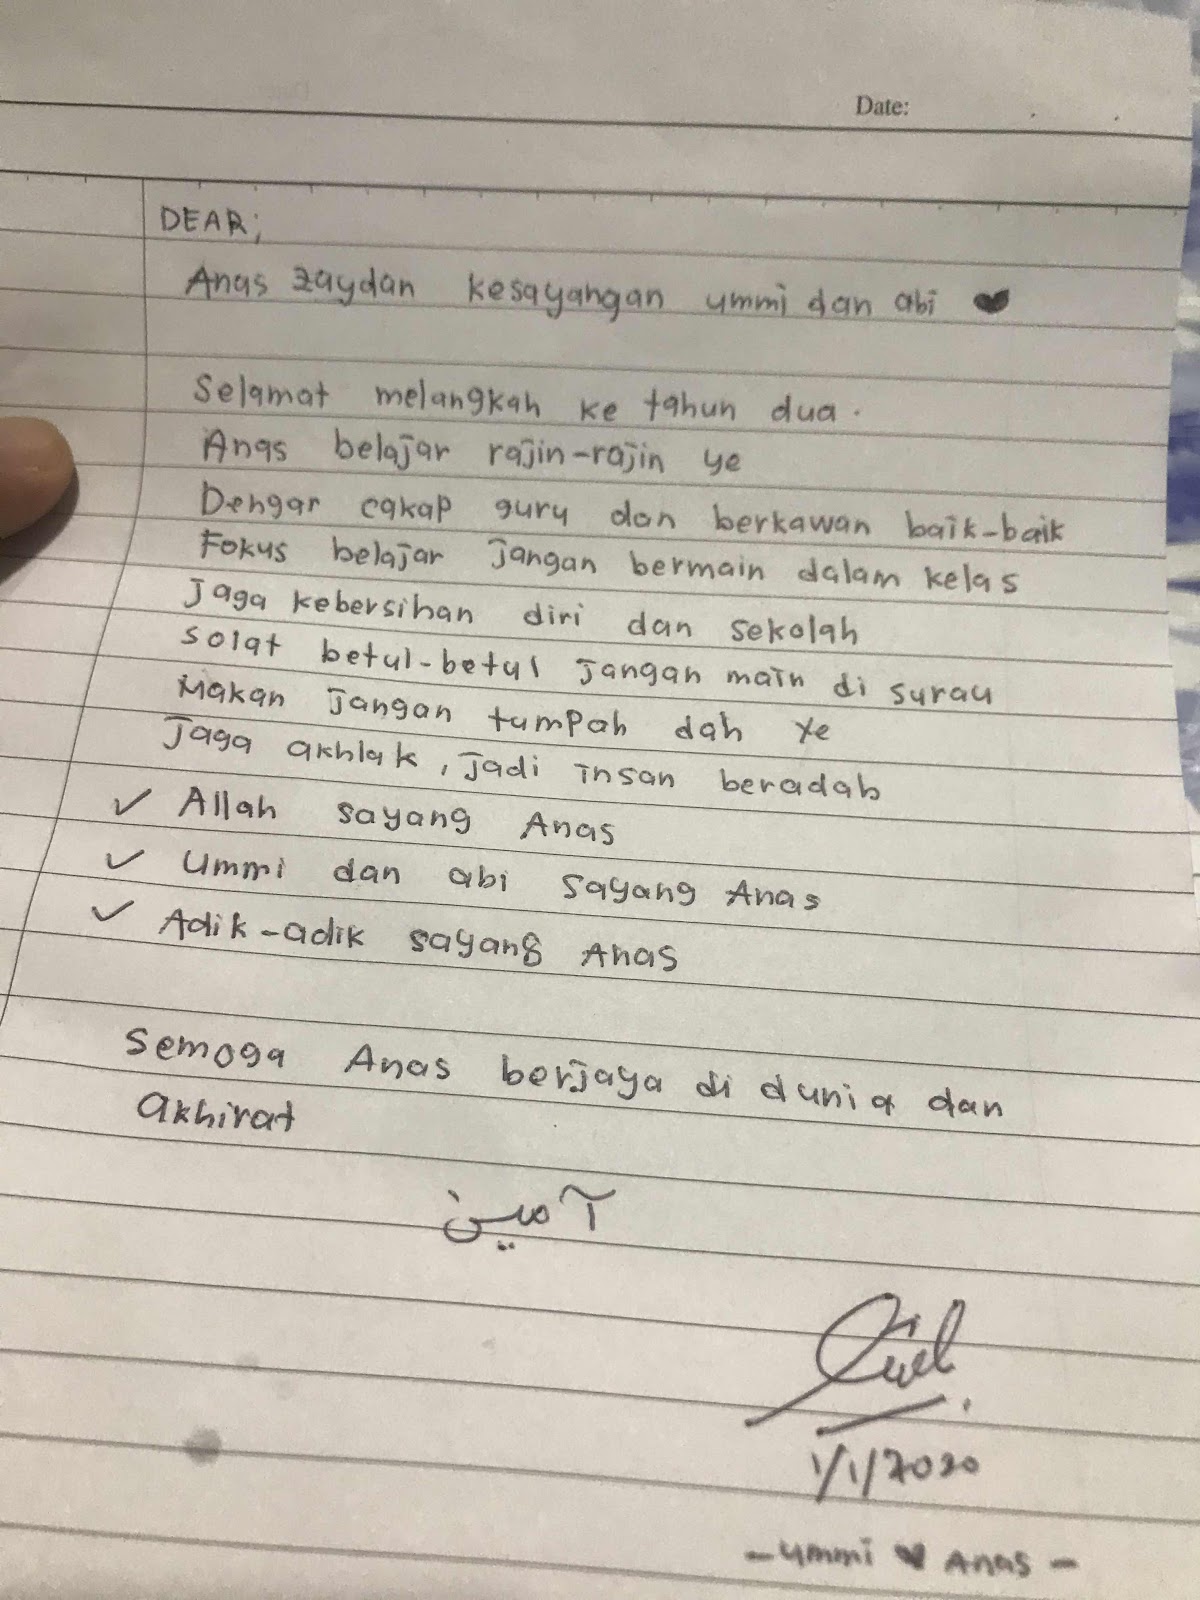 Date:
DEAR;
Anas zaydan kesayangan ummi dan abi ♥
Selamat melangkah ke tahun dua.
Anas belajar rajin-rajin ye
Dengar cakap guru dan berkawan baik-baik
Fokus belajar jangan bermain dalam kelas
Jaga kebersihan diri dan sekolah
Solat betul-betul jangan main di surau
Makan jangan tumpah dah ye
Jaga akhlak, jadi insan beradab
✓ Allah sayang Anas
✓ Ummi dan abi sayang Anas
✓ Adik-adik sayang Anas
Semoga Anas berjaya di dunia dan
akhirat
آمين
1/1/2020
- ummi ♥ Anas -